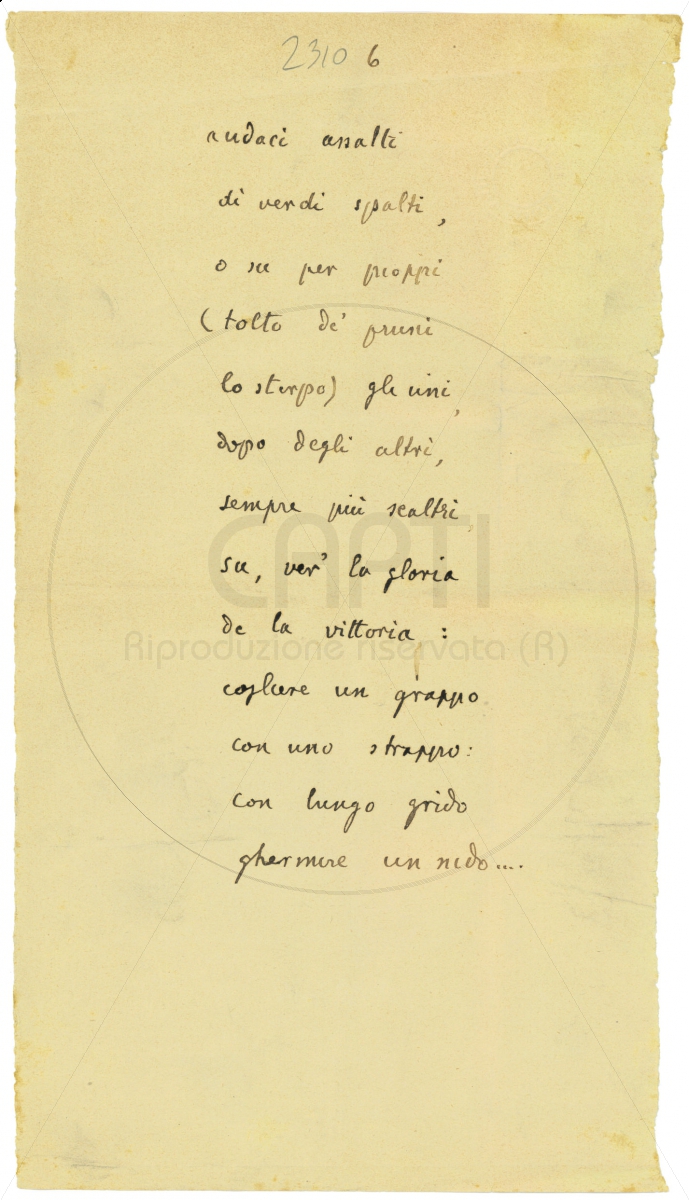 2310 6
audaci assalti
di verdi spalti,
o su per pioppi
(tolto de' pruni
lo sterpo) gli uni,
dopo degli altri,
sempre più scaltri
su, ver' la gloria
CAPTI
de la vittoria :
Riproduzione riservata (R)
cogliere un grappo
con uno strappo:
con lungo grido
ghermire un nido....